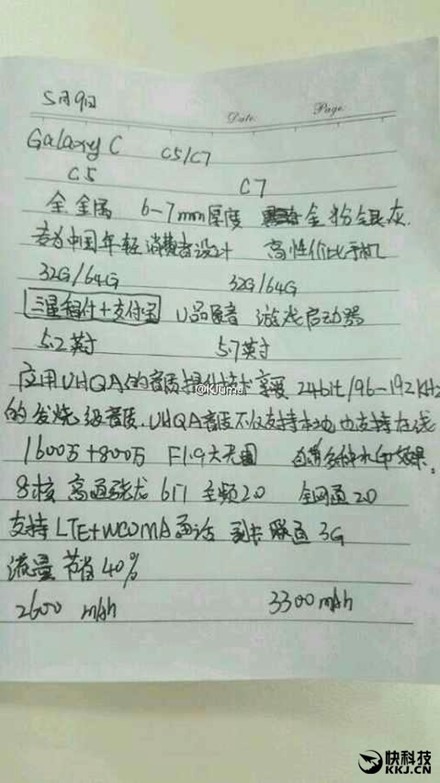 5月9日
Date.
Page.
Galaxy C C5/C7
C5 C7
全金属 6-7mm厚度 金粉银灰.
专为中国年轻消费者设计 高性价比手机
32G/64G 32G/64G
三星智付+支付宝 U品音 游戏启动器
5.2英寸 5.7英寸
@KJuma
应用UHQA的音质提升技术享受24bit/96-192KHz
的发烧级音质.UHQA音质不仅支持本地也支持在线
1600万+800万 F1.9大光圈 多种水印效果。
8核 高通骁龙 617 主频2.0 全网通2.0
支持LTE+WCDMA通话 副卡联通3G
流量节省40%
2600 mAh 3300mAh
快科技
KKJ.CN